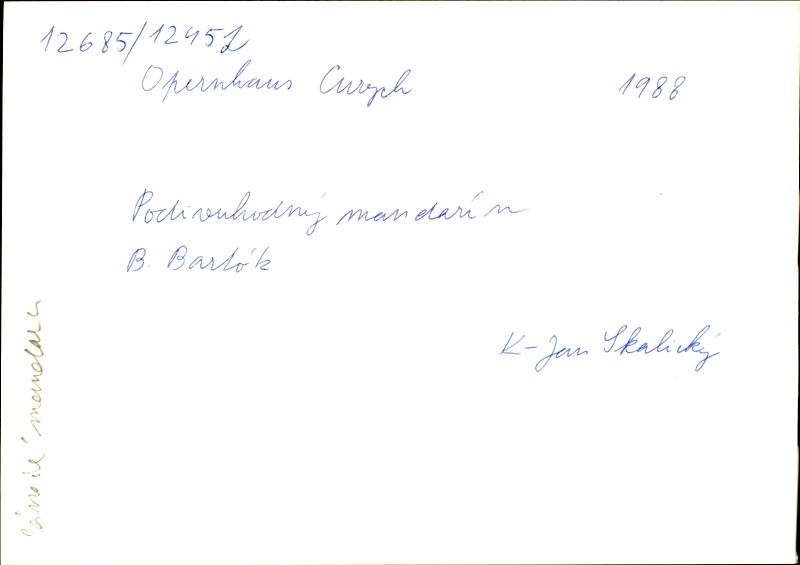 12685/12451
Opernhaus Curych 1988
Podivuhodný mandarín
B. Bartók
K-Jan Skalický